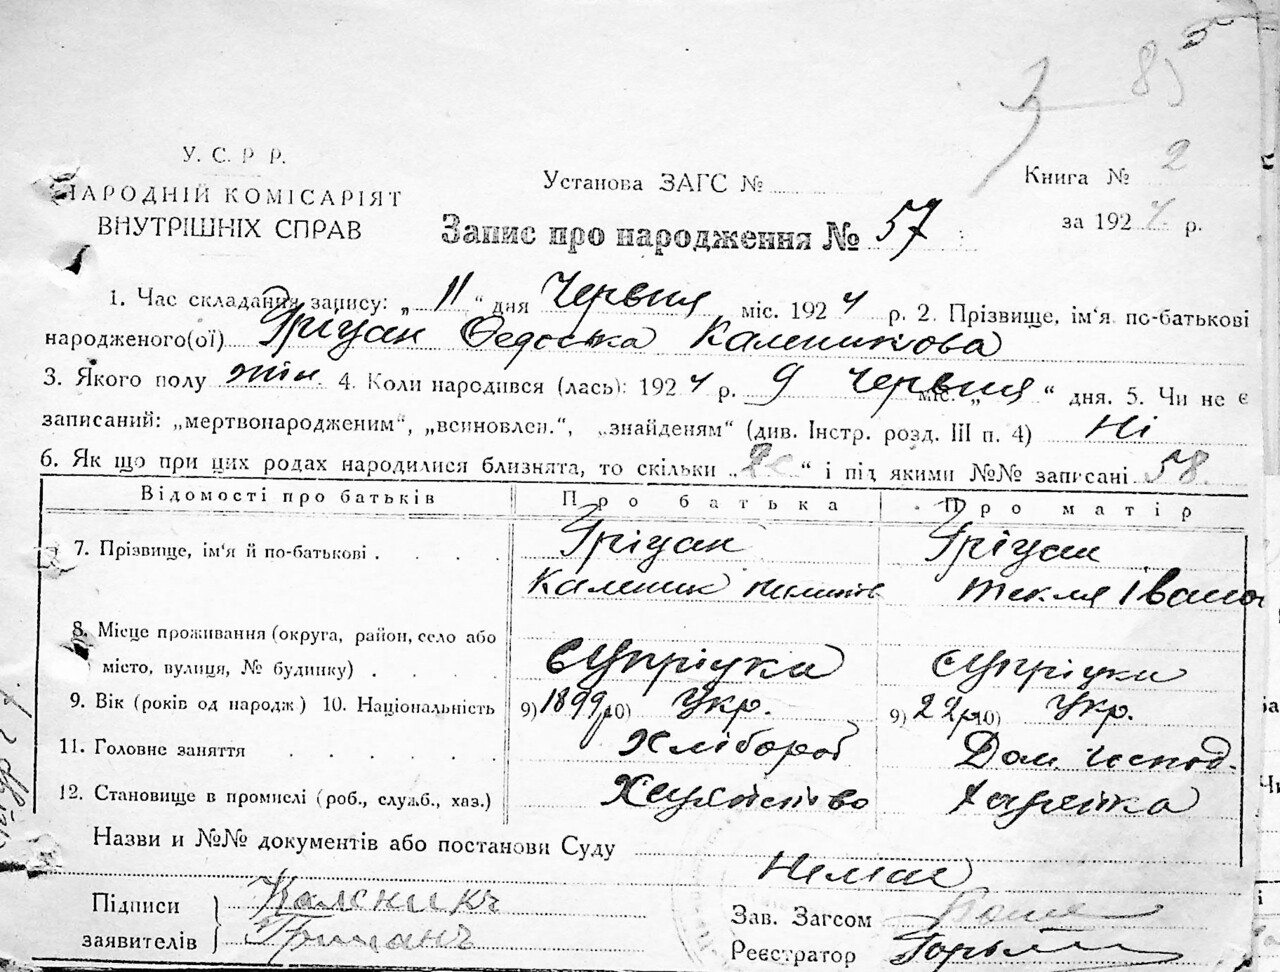 85
У. С. Р Р.
НАРОДНІЙ КОМІСАРІЯТ
ВНУТРІШНІХ СПРАВ
Установа ЗАГС №
Книга № 2
за 1924 р.
Запис про народження № 57
1. Час складання запису: „ 11 “ дня Червня міс. 1924 р. 2. Прізвище, ім'я по-батькові
народженого(ої) Гріцан Федоська Каленикова
3. Якого полу жін. 4. Коли народився (лась): 1924 р. 9 Червня міс. „ “ дня. 5. Чи не є
записаний: „мертвонародженим“, „всиновлен.“, „знайденям“ (див. Інстр. розд. III п. 4) Ні
6. Як що при цих родах народилися близнята, то скільки „ 2є “ і під якими №№ записані 58.
Відомості про батьків Про батька Про матір
7. Прізвище, ім'я й по-батькові . . . . Гріцан Гріцан
Каленик Текля Івано
8. Місце проживання (округа, район, село або
місто, вулиця, № будинку) . . . . Єупріцка Єупріцки
9. Вік (років од народж) 10. Національність 9) 1899р 10) Укр. 9) 22р 10) Укр.
11. Головне заняття . . . . . Хлібороб Дом. Господ.
12. Становище в промислі (роб., служб., хаз.) Хазяйство Хазяйка
Назви и №№ документів або постанови Суду Немає
Підписи Каленикъ
заявителів Грицанъ
Зав. Загсом
Реєстратор